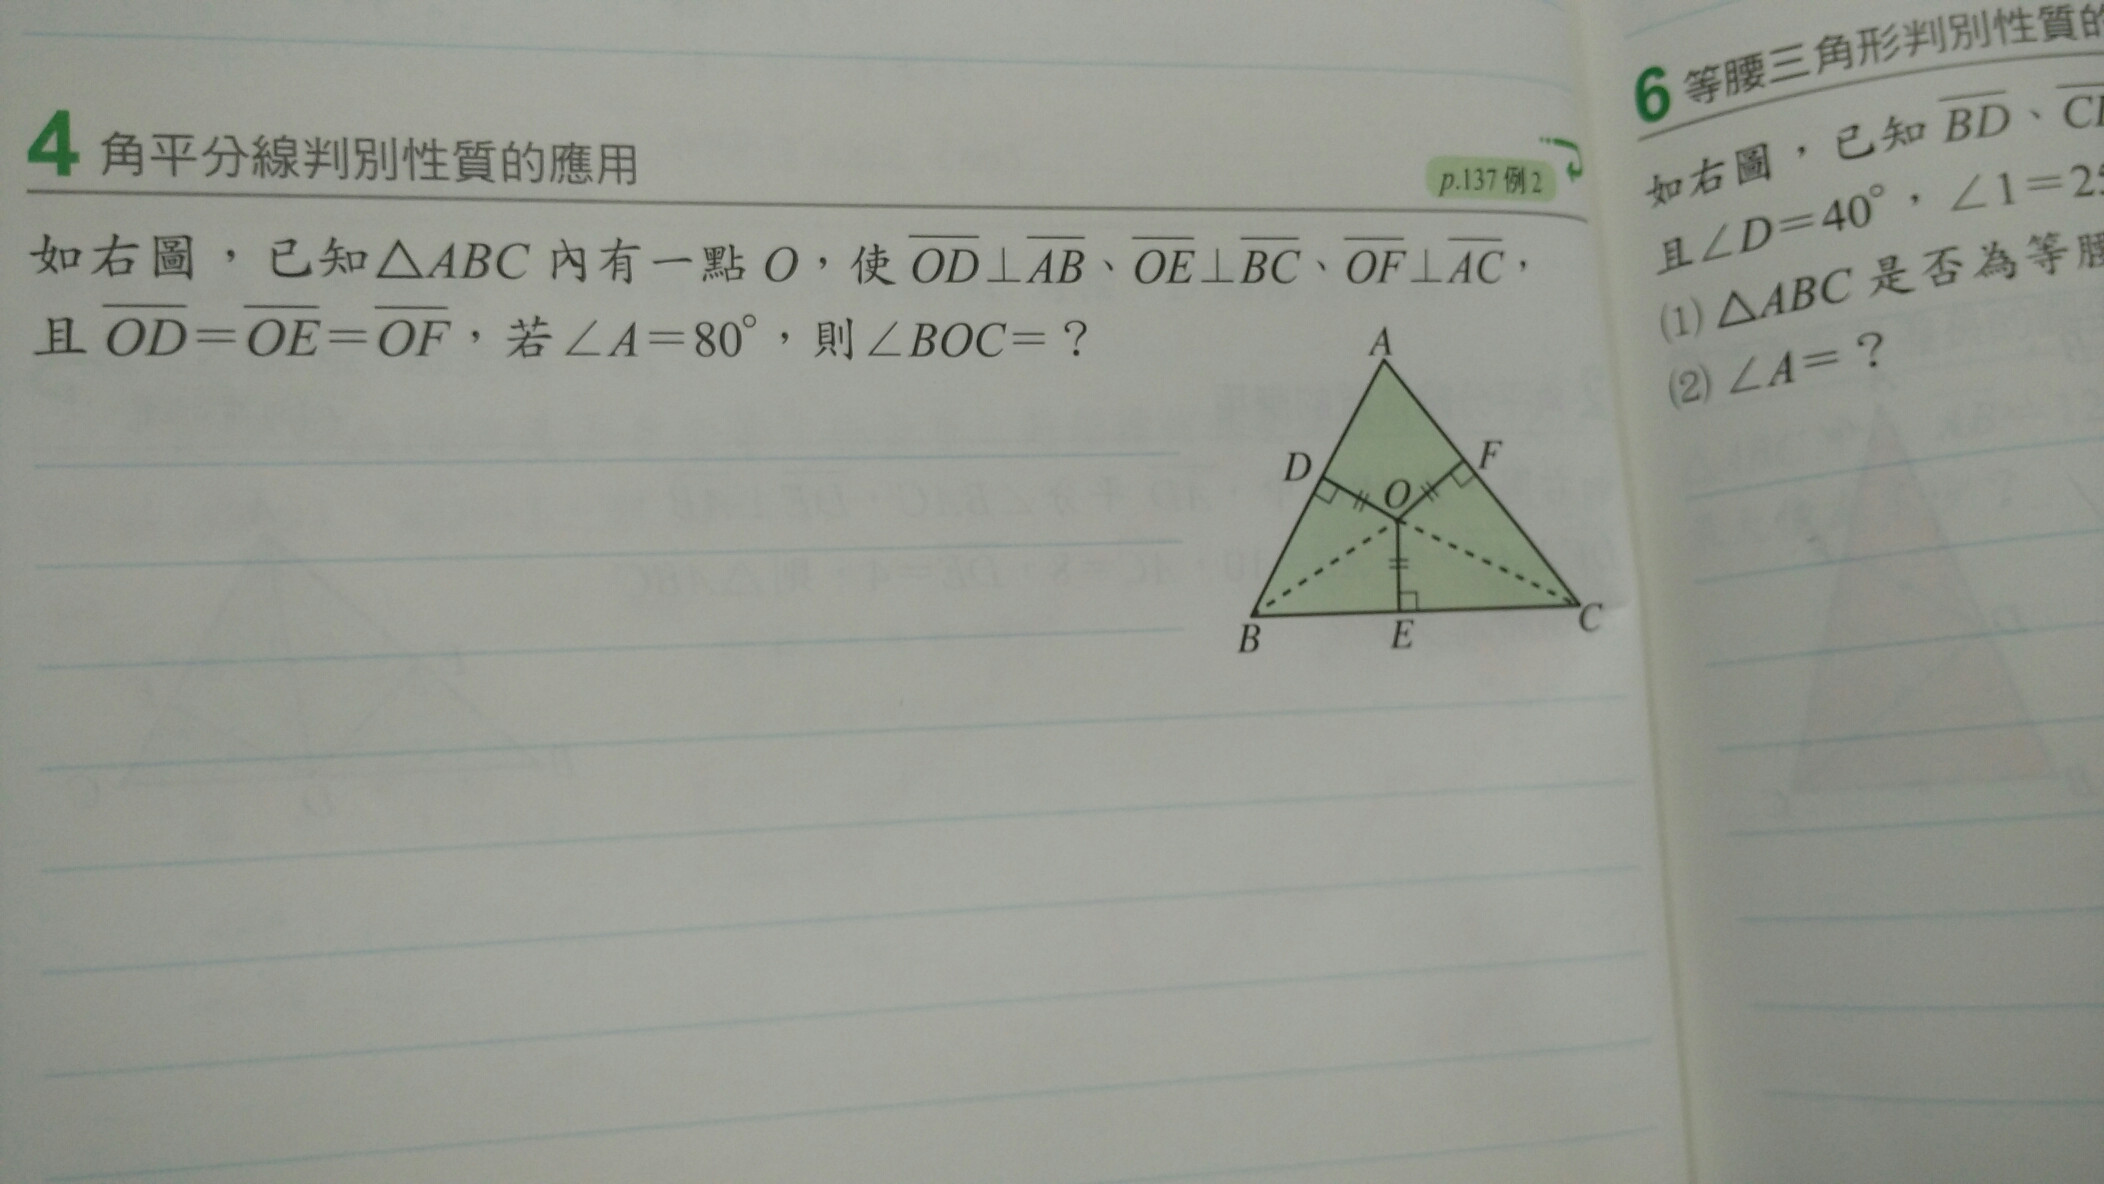 4 角平分線判別性質的應用
p.137 例2
如右圖，已知△ABC 內有一點 O，使 OD⊥AB、OE⊥BC、OF⊥AC，
且 OD=OE=OF，若∠A=80°，則∠BOC=？
A
D
F
O
B
E
C
6 等腰三角形判別性質的
如右圖，已知 BD、
且∠D=40°，∠1=
(1) △ABC 是否為等腰
(2) ∠A=？